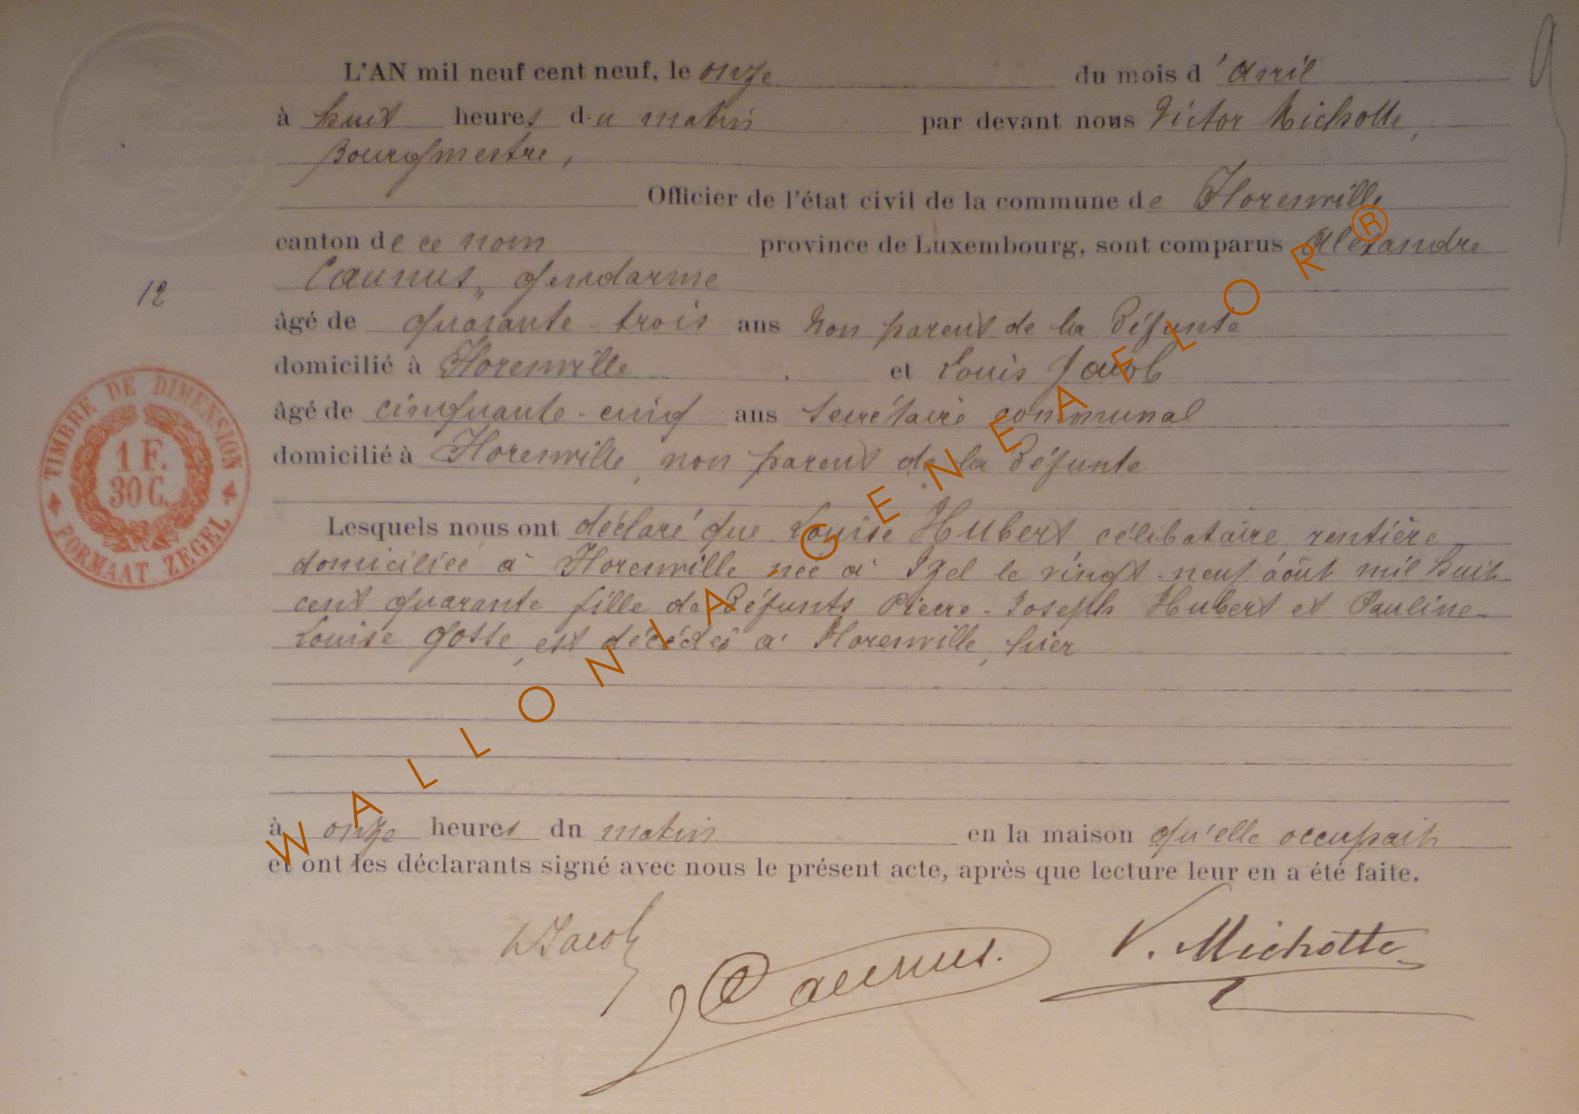 L'AN mil neuf cent neuf, le onze du mois d'avril
à huit heures du matin par devant nous Victor Michotte,
Bourgmestre,
Officier de l'état civil de la commune de Florenville
canton de ce nom province de Luxembourg, sont comparus Alexandre
Caunus, gendarme
12
âgé de quarante-trois ans non parent de la défunte
domicilié à Florenville et Louis Jacob
âgé de cinquante-cinq ans secrétaire communal
domicilié à Florenville, non parent de la défunte
TIMBRE DE DIMENSION
1 F.
30 C.
FORMAAT ZEGEL
Lesquels nous ont déclaré que Louise Hubert célibataire, rentière
domiciliée à Florenville, née à Izel le vingt-neuf août mil huit
cent quarante fille de défunts Pierre-Joseph Hubert et Pauline-
Louise Gosse, est décédée à Florenville, hier
à onze heures du matin en la maison qu'elle occupait
et ont les déclarants signé avec nous le présent acte, après que lecture leur en a été faite.
L Jacob
Caunus.
V. Michotte
WALLONIA GENEAFLOR®